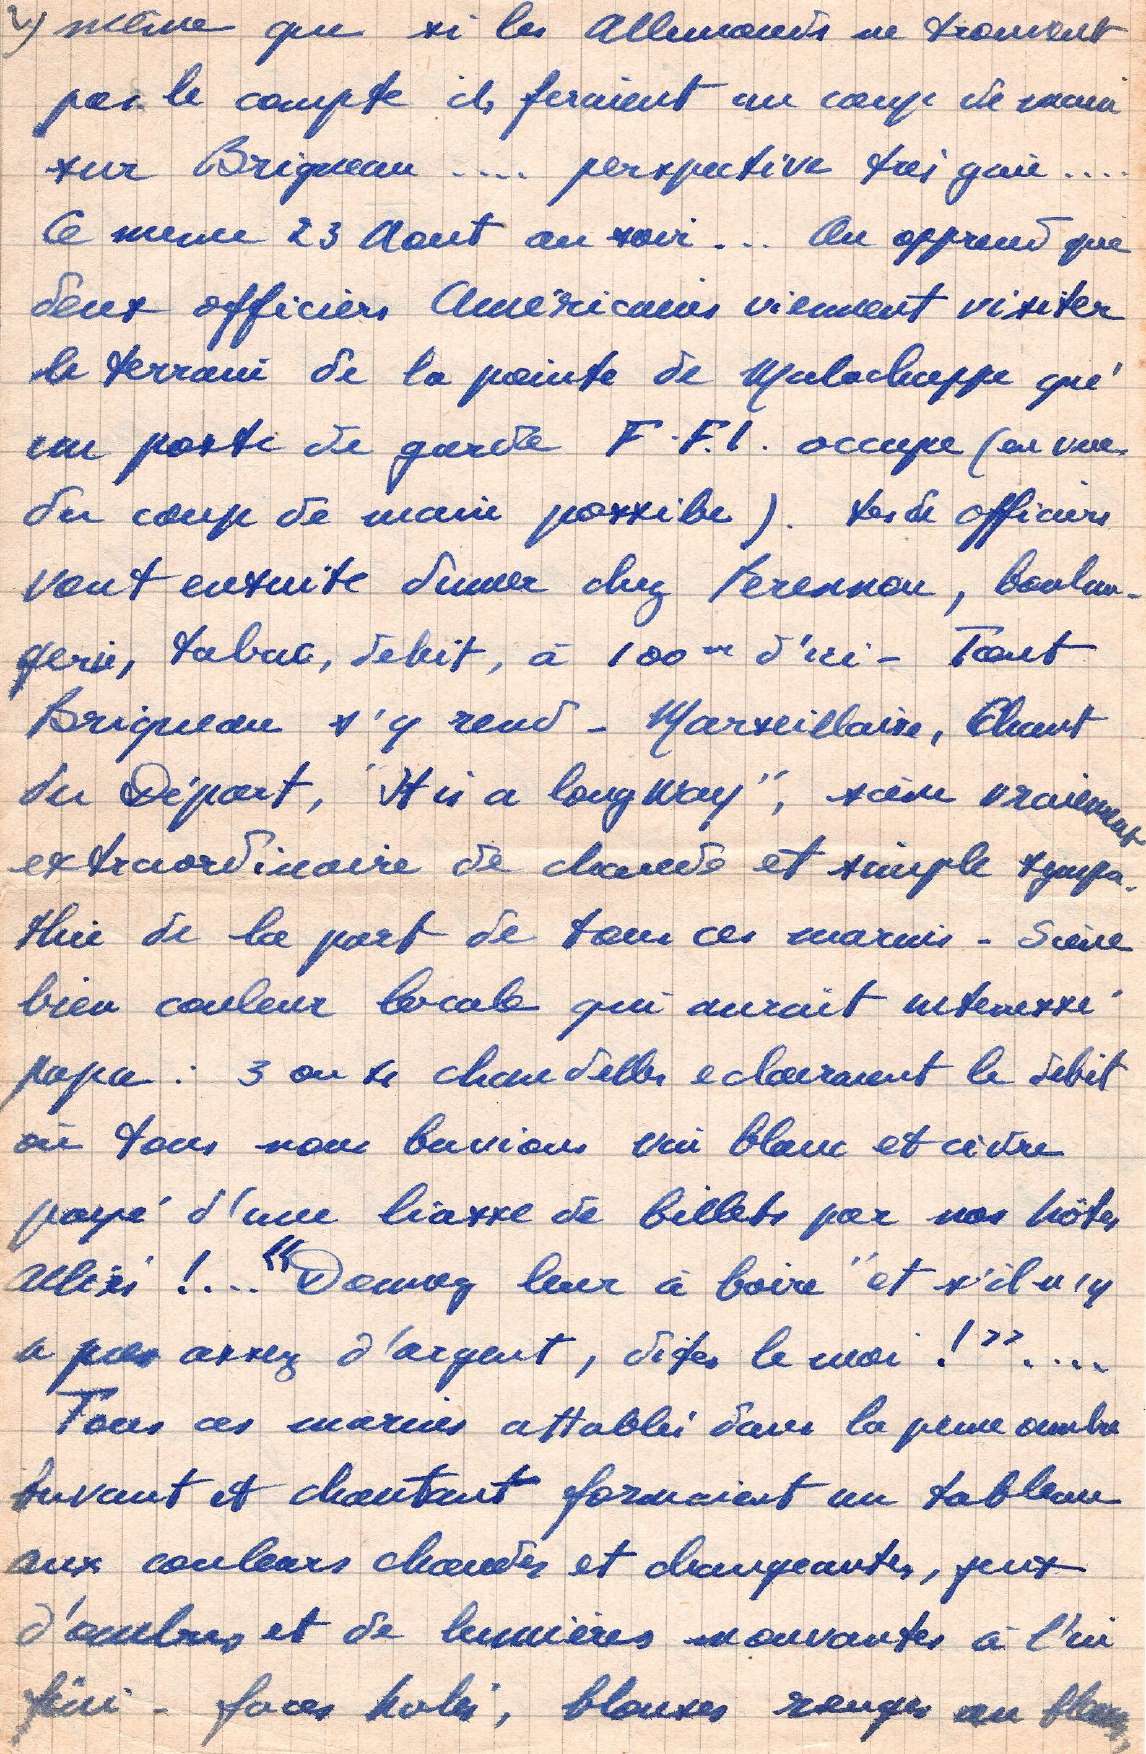 2) même que si les Allemands ne trouvent
pas le compte ils feraient un coup de main
sur Brigneau .... perspective très gaie ....
Ce meme 23 Aout au soir ... On apprend que
deux officiers Américains viennent visiter
le terrain de la pointe de Malachappe qu'
un poste de garde F.F.I. occupe (en vue
du coup de main possible). officiers
vont ensuite diner chez Perennou, boulan-
gerie, tabac, debit, à 100m d'ici - Tout
Brigneau s'y rend - Marseillaise, Chant
du Départ, "It is a long Way", scène vraiement
extraordinaire de chaude et simple sympa-
thie de la part de tous ces marins - Scène
bien couleur locale qui aurait interessé
papa : 3 ou chandelles eclairaient le debit
où tous nous buvions vin blanc et cidre
payé d'une liasse de billets par nos hôtes
alliés ! ... "Donnez leur à boire" et s'il n'y
a pas assez d'argent, dites le moi ! " ....
Tous ces marins attablés dans la penombre
buvant et chantant formaient un tableau
aux couleurs chaudes et changeantes, jeux
d'ombres et de lumières mouvantes à l'in
fini - faces halés, blouses rouges ou bleues,